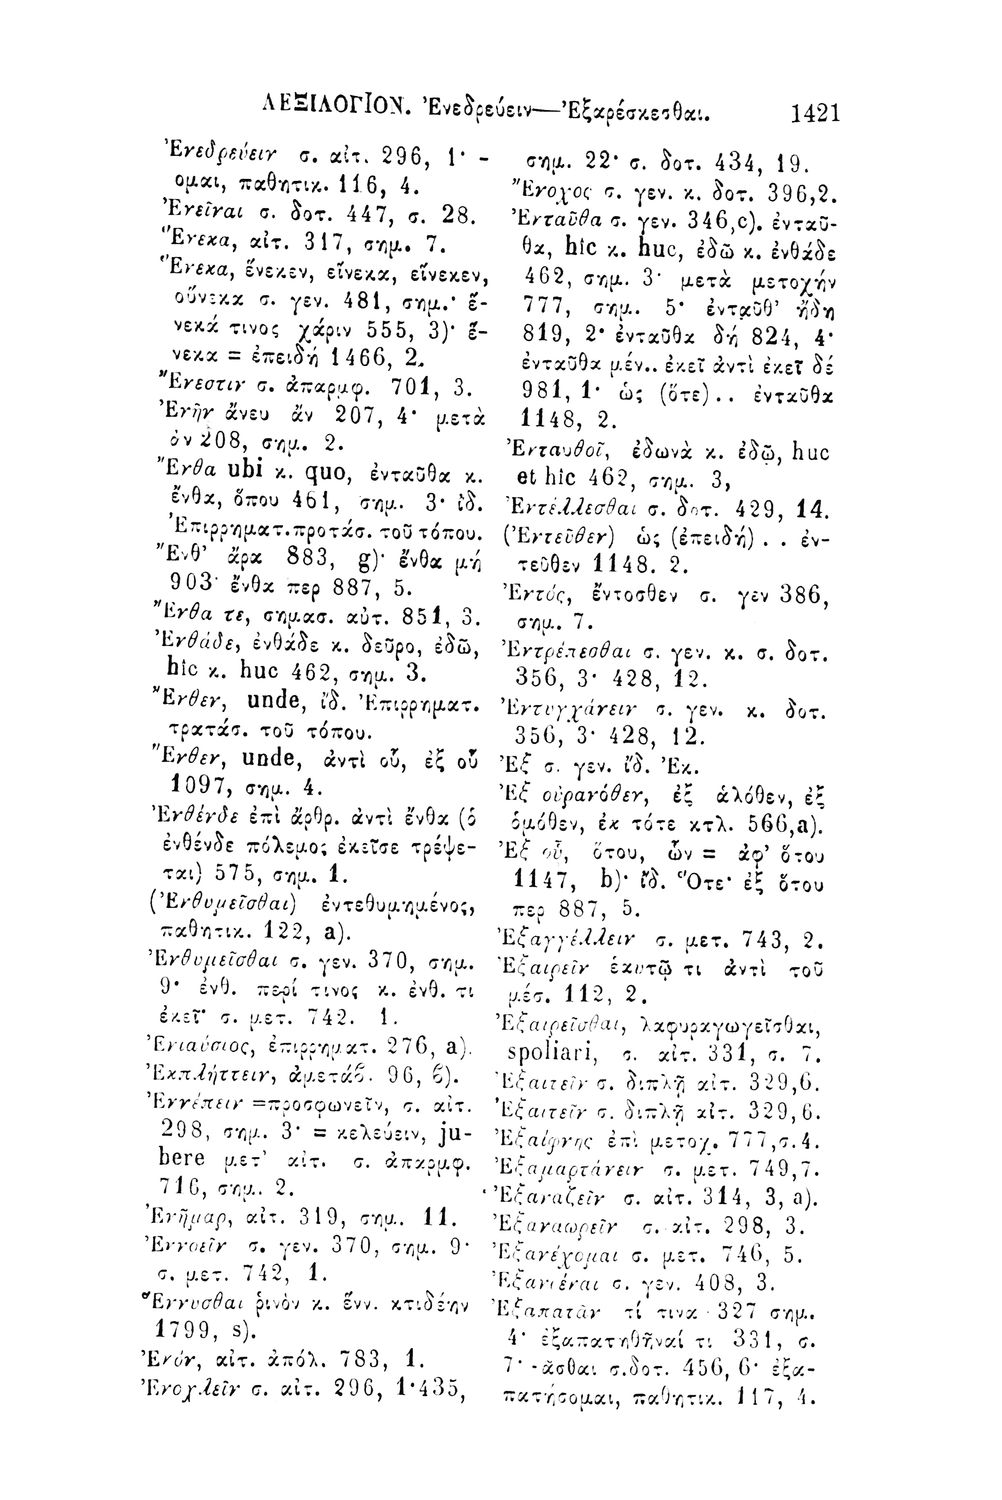 ΛΕΞΙΛΟΓΙΟΝ. Ἐνεδρεύειν—Ἐξαρέσκεσθαι. 1421
Ἐνεδρεύειν σ. αἰτ. 296, 1· -
ομαι, παθητικ. 116, 4.
Ἐνεῖναι σ. δοτ. 447, σ. 28.
Ἕνεκα, αἰτ. 317, σημ. 7.
Ἕνεκα, ἕνεκεν, εἵνεκα, εἵνεκεν,
οὕνεκα σ. γεν. 481, σημ.· ἕ-
νεκά τινος χάριν 555, 3)· ἕ-
νεκα = ἐπειδή 1466, 2.
Ἔνεστιν σ. ἀπαρμφ. 701, 3.
Ἐνῆν ἄνευ ἄν 207, 4· μετὰ
ὀν 208, σημ. 2.
Ἔνθα ubi κ. quo, ἐνταῦθα κ.
ἔνθα, ὅπου 461, σημ. 3· ἰδ.
Ἐπιρρηματ. προτάσ. τοῦ τόπου.
Ἔνθ' ἄρα 883, g)· ἔνθα μή
903· ἔνθα περ 887, 5.
Ἔνθα τε, σημασ. αὐτ. 851, 3.
Ἐνθάδε, ἐνθάδε κ. δεῦρο, ἐδῶ,
hic κ. huc 462, σημ. 3.
Ἔνθεν, unde, ἰδ. Ἐπιρρηματ.
τρατάσ. τοῦ τόπου.
Ἔνθεν, unde, ἀντὶ οὗ, ἐξ οὗ
1097, σημ. 4.
Ἐνθένδε ἐπὶ ἄρθρ. ἀντὶ ἔνθα (ὁ
ἐνθένδε πόλεμος ἐκεῖσε τρέψε-
ται) 575, σημ. 1.
(Ἐνθυμεῖσθαι) ἐντεθυμημένος,
παθητικ. 122, a).
Ἐνθυμεῖσθαι σ. γεν. 370, σημ.
9· ἐνθ. περί τινος κ. ἐνθ. τι
ἐκεῖ· σ. μετ. 742. 1.
Ἐνιαύσιος, ἐπιρρηματ. 276, a).
Ἐκπλήττειν, ἀμετάβ. 96, β).
Ἐννέπειν =προσφωνεῖν, σ. αἰτ.
298, σημ. 3· = κελεύειν, ju-
bere μετ' αἰτ. σ. ἀπαρμφ.
716, σημ. 2.
Ἐνῆμαρ, αἰτ. 319, σημ. 11.
Ἐννοεῖν σ. γεν. 370, σημ. 9·
σ. μετ. 742, 1.
Ἕννυσθαι ῥινὸν κ. ἕνν. κτιδέην
1799, s).
Ἐνόν, αἰτ. ἀπόλ. 783, 1.
Ἐνοχλεῖν σ. αἰτ. 296, 1·435,
σημ. 22· σ. δοτ. 434, 19.
Ἔνοχος σ. γεν. κ. δοτ. 396,2.
Ἐνταῦθα σ. γεν. 346,c). ἐνταῦ-
θα, hic κ. huc, ἐδῶ κ. ἐνθάδε
462, σημ. 3· μετὰ μετοχήν
777, σημ. 5· ἐνταῦθ' ἤδη
819, 2· ἐνταῦθα δή 824, 4·
ἐνταῦθα μέν.. ἐκεῖ ἀντὶ ἐκεῖ δέ
981, 1· ὡς (ὅτε).. ἐνταῦθα
1148, 2.
Ἐνταυθοῖ, ἐδωνὰ κ. ἐδῶ, huc
et hic 462, σημ. 3,
Ἐντέλλεσθαι σ. δοτ. 429, 14.
(Ἐντεῦθεν) ὡς (ἐπειδή) . . ἐν-
τεῦθεν 1148. 2.
Ἐντός, ἔντοσθεν σ. γεν 386,
σημ. 7.
Ἐντρέπεσθαι σ. γεν. κ. σ. δοτ.
356, 3· 428, 12.
Ἐντυγχάνειν σ. γεν. κ. δοτ.
356, 3· 428, 12.
Ἐξ σ. γεν. ἴδ. Ἐκ.
Ἐξ οὐρανόθεν, ἐξ ἁλόθεν, ἐξ
ὁμόθεν, ἐκ τότε κτλ. 566,a).
Ἐξ οὗ, ὅτου, ὧν = ἀφ' ὅτου
1147, b)· ἴδ. Ὅτε· ἐξ ὅτου
περ 887, 5.
Ἐξαγγέλλειν σ. μετ. 743, 2.
Ἐξαιρεῖν ἑαυτῷ τι ἀντὶ τοῦ
μέσ. 112, 2.
Ἐξαιρεῖσθαι, λαφυραγωγεῖσθαι,
spoliari, σ. αἰτ. 331, σ. 7.
Ἐξαιτεῖν σ. διπλῇ αἰτ. 329,6.
Ἐξαιτεῖν σ. διπλῇ αἰτ. 329,6.
Ἐξαίφνης ἐπὶ μετοχ. 777,σ.4.
Ἐξαμαρτάνειν σ. μετ. 749,7.
Ἐξαναζεῖν σ. αἰτ. 314, 3, a).
Ἐξαναωρεῖν σ. αἰτ. 298, 3.
Ἐξανέχομαι σ. μετ. 746, 5.
Ἐξανιέναι σ. γεν. 408, 3.
Ἐξαπατᾶν τί τινα 327 σημ.
4· ἐξαπατηθῆναί τι 331, σ.
7· -ᾶσθαι σ.δοτ. 456, 6· ἐξα-
πατήσομαι, παθητικ. 117, 4.